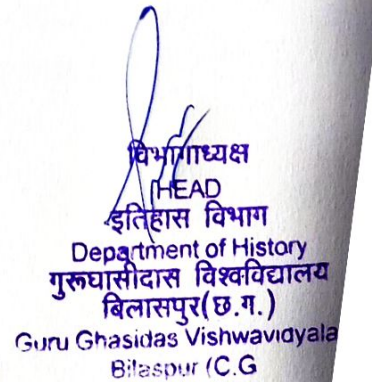 विभागाध्यक्ष
HEAD
इतिहास विभाग
Department of History
गुरूघासीदास विश्वविद्यालय
बिलासपुर(छ.ग.)
Guru Ghasidas Vishwavidayala
Bilaspur (C.G